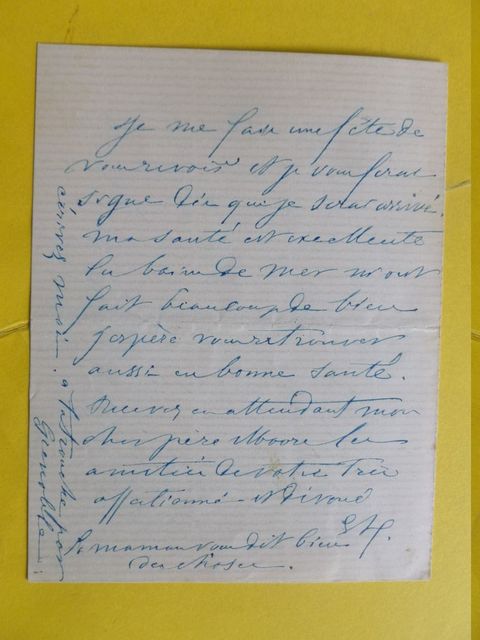 Je me fais une fête de
vous revoir et je vous ferai
signe dès que je serai arrivé.
ma santé est excellente
les bains de mer m'ont
fait beaucoup de bien
j'espère vous retrouver
aussi en bonne santé.
Recevez en attendant mon
cher père Moore les
amitiés de votre très
affectionné et dévoué
LH.
La maman vous dit bien
des choses.
écrivez moi. a La tronche par
Grenoble.